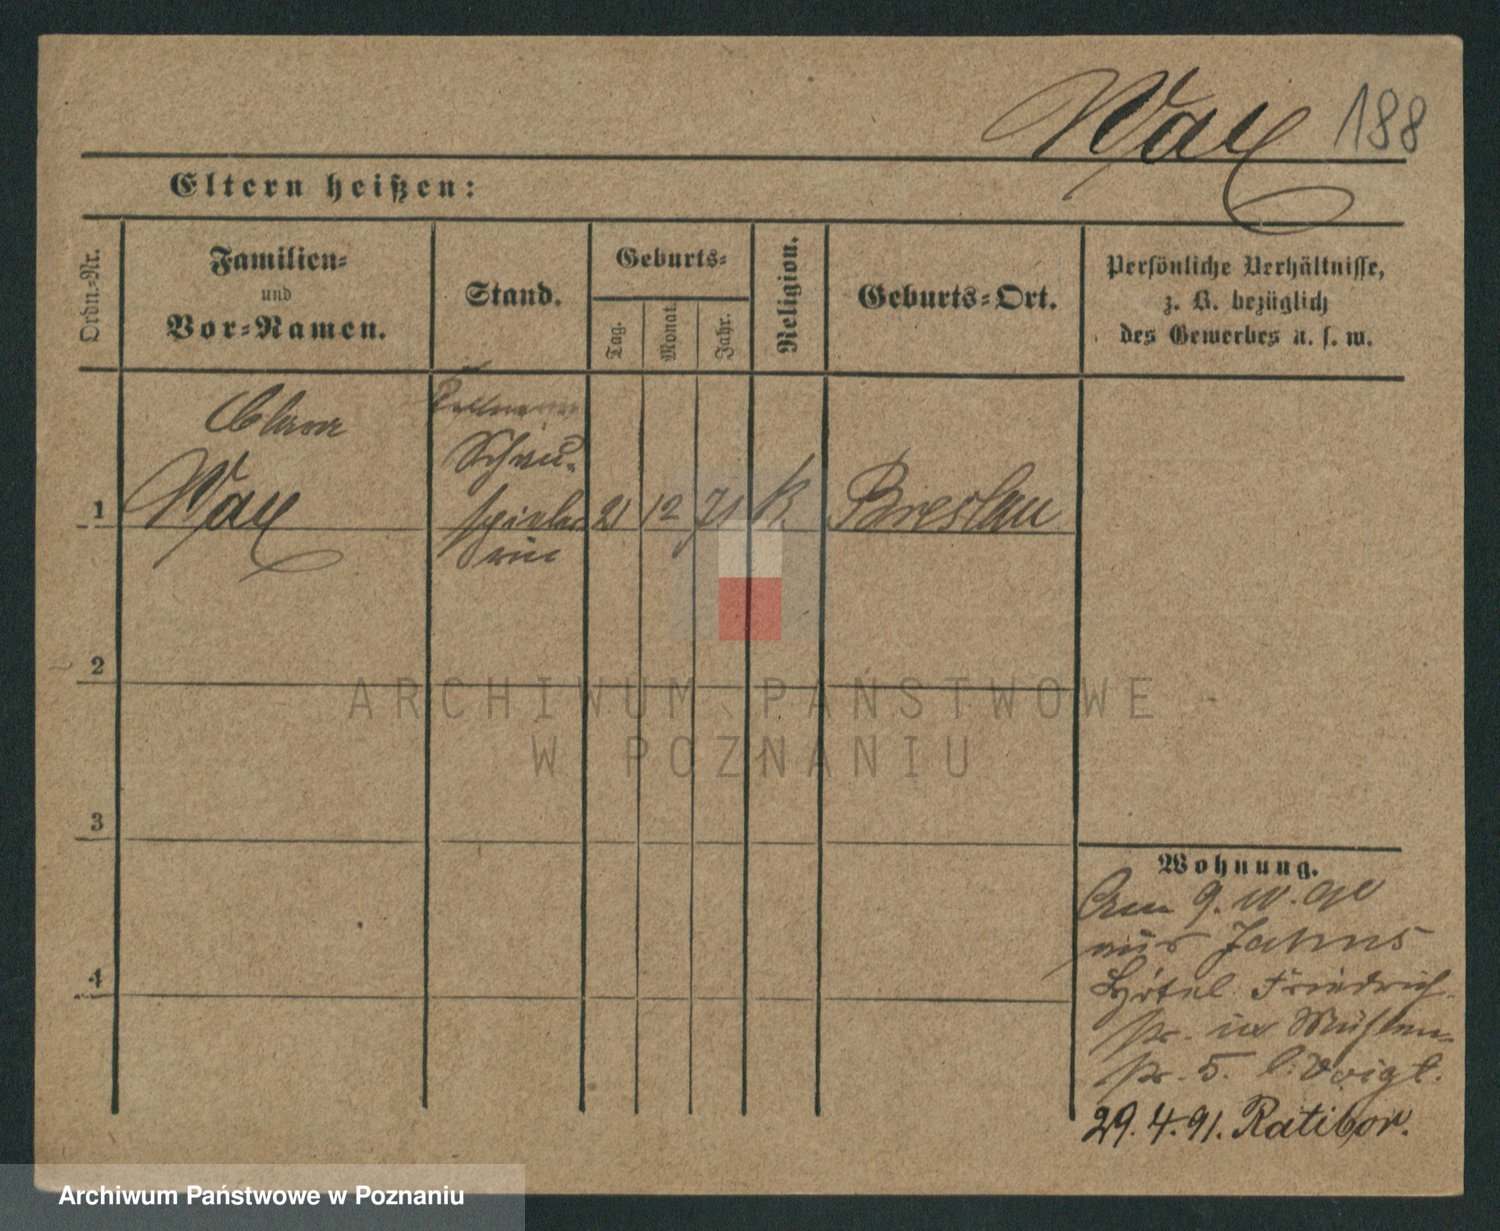 Way 188
Eltern heißen:
Ordn.-Nr.
Familien-
und
Vor-Namen.
Stand.
Geburts-
Tag.
Monat.
Jahr.
Religion.
Geburts-Ort.
Persönliche Verhältnisse,
z. B. bezüglich
des Gewerbes u. s. w.
Clara
Schau-
1 Way spieler 21 12 71 k. Breslau
rin
2
3
4
Wohnung.
Am 9. 10. 90
aus Jahns
Hôtel Friedrich-
str. in Mühlen-
str. 5. b. Voigt.
29. 4. 91. Ratibor.
ARCHIWUM PAŃSTWOWE
W POZNANIU
Archiwum Państwowe w Poznaniu